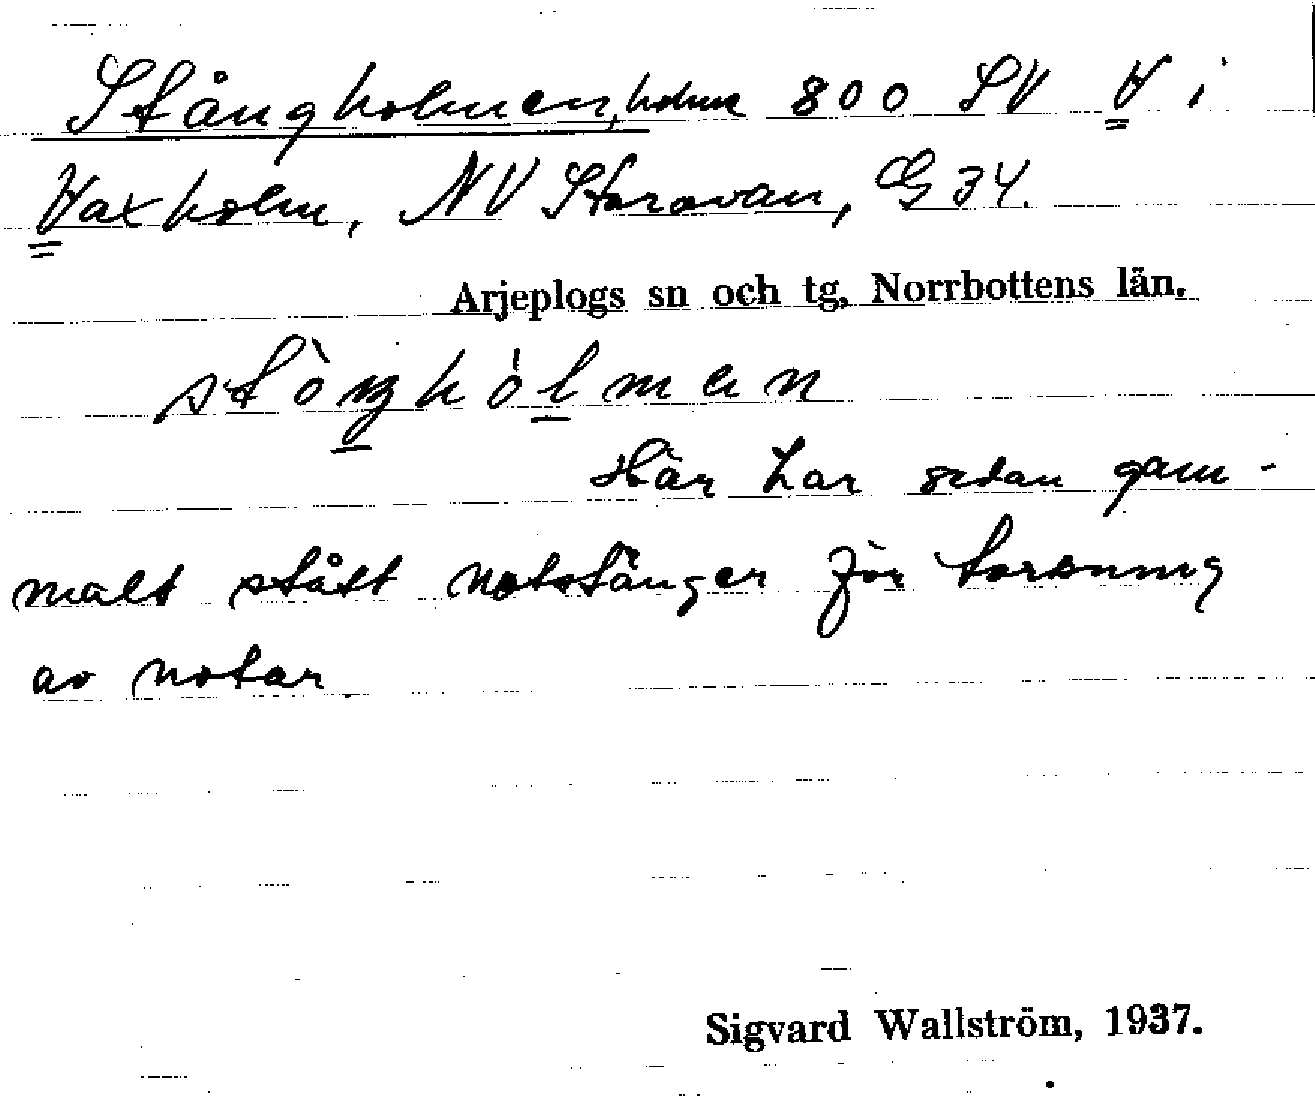 Stångholmen, holme 800 SV V i
Vaxholm, NV Storavan, G 34.
Arjeplogs sn och tg, Norrbottens län.
stòŋhólmen
Här har sedan gam-
malt stått notstänger för torkning
av notar
Sigvard Wallström, 1937.